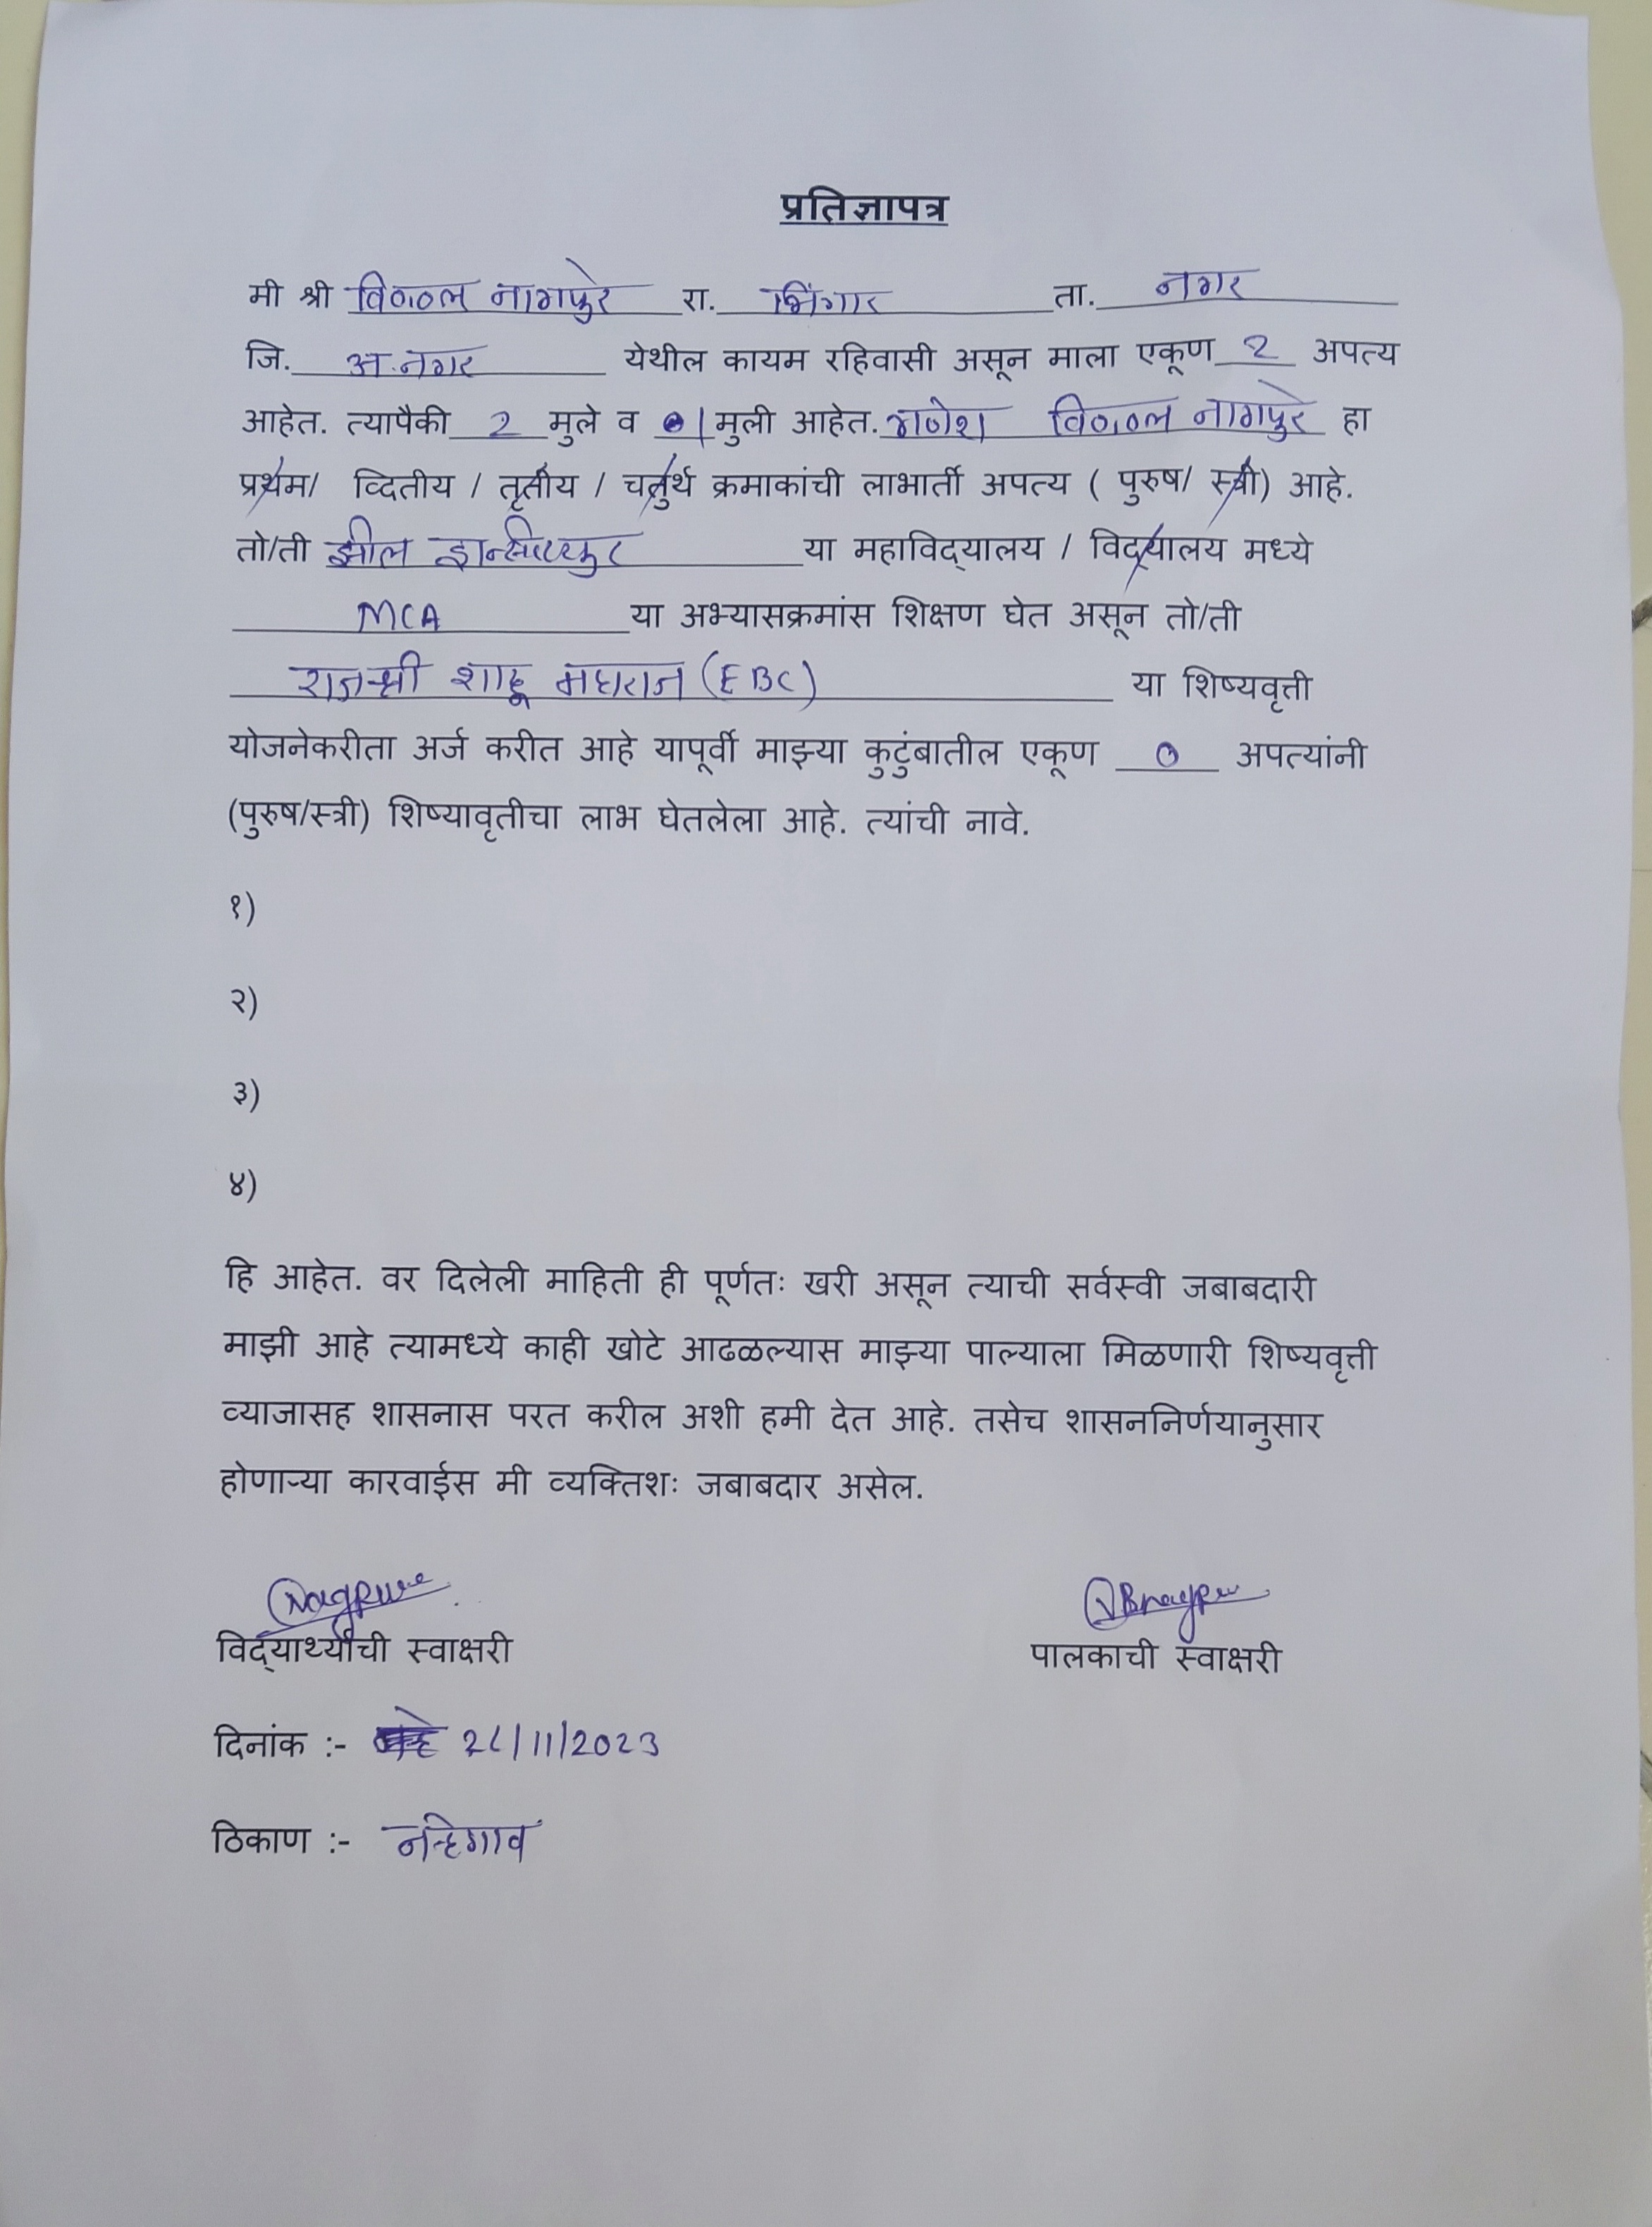 प्रतिज्ञापत्र
मी श्री विठ्ठल नागपुरे रा. भिंगार ता. नगर
जि. अ.नगर येथील कायम रहिवासी असून माला एकूण 2 अपत्य
आहेत. त्यापैकी 2 मुले व मुली आहेत. गणेश विठ्ठल नागपुरे हा
प्रथम/ व्दितीय / तृतीय / चतुर्थ क्रमाकांची लाभार्ती अपत्य ( पुरुष/ स्त्री) आहे.
तो/ती झील या महाविद्यालय / विद्यालय मध्ये
MCA या अभ्यासक्रमांस शिक्षण घेत असून तो/ती
शाहू महाराज (EBC) या शिष्यवृत्ती
योजनेकरीता अर्ज करीत आहे यापूर्वी माझ्या कुटुंबातील एकूण 0 अपत्यांनी
(पुरुष/स्त्री) शिष्यावृतीचा लाभ घेतलेला आहे. त्यांची नावे.
१)
२)
३)
४)
हि आहेत. वर दिलेली माहिती ही पूर्णतः खरी असून त्याची सर्वस्वी जबाबदारी
माझी आहे त्यामध्ये काही खोटे आढळल्यास माझ्या पाल्याला मिळणारी शिष्यवृत्ती
व्याजासह शासनास परत करील अशी हमी देत आहे. तसेच शासननिर्णयानुसार
होणाऱ्या कारवाईस मी व्यक्तिशः जबाबदार असेल.
Nagpure
विद्यार्थ्यांची स्वाक्षरी पालकाची स्वाक्षरी
दिनांक :-
ठिकाण :- नऱ्हेगाव